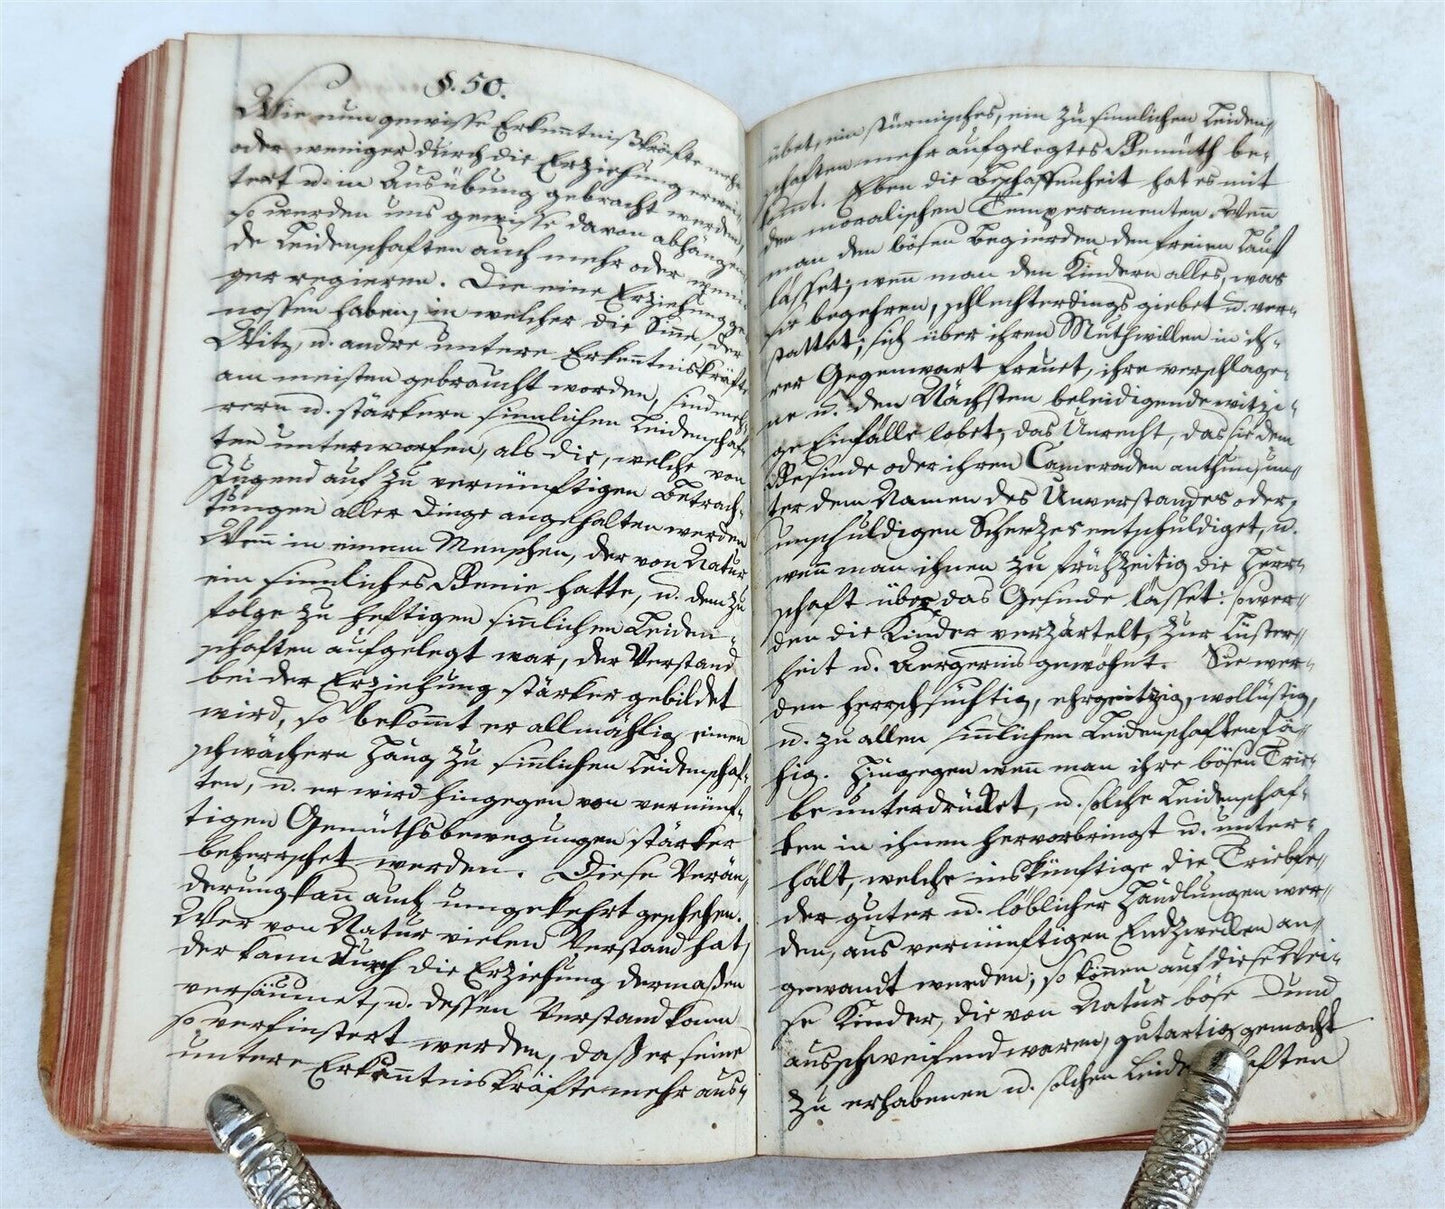 §. 50.
Wie nun gewisse Erkenntnißkräfte mehr
oder weniger durch die Erziehung erwei-
tert u. in Ausübung gebracht werden,
so werden uns gewisse davon abhängen-
de Leidenschaften auch mehr oder weni-
ger regieren. Die eine Erziehung ge-
nossen haben, in welcher die Sinne, der
Witz, u. andre untere Erkenntniskräfte
am meisten gebraucht worden, sind meh-
rern u. stärkern sinnlichen Leidenschaf-
ten unterworfen, als die, welche von
Jugend auf zu vernünftigen Betrach-
tungen aller Dinge angehalten werden
Wenn in einem Menschen, der von Natur
ein sinnliches Genie hatte, u. dem zu
folge zu heftigen sinnlichen Leiden-
schaften aufgelegt war, der Verstand
bei der Erziehung stärker gebildet
wird, so bekomt er allmählig einen
schwächern Hang zu sinlichen Leidenschaf-
ten, u. er wird hingegen von vernünf-
tigen Gemüthsbewegungen stärker
beherrschet werden. Diese Verän-
derung kan auch umgekehrt geschehen.
Wer von Natur vielen Verstand hat,
der kann durch die Erziehung dermaßen
versäumet, u. dessen Verstand kann
so verfinstert werden, daß er seine
untere Erkenntniskräfte mehr aus-
übet, ein stürmisches, ein zu sinnlichen Leiden-
schaften mehr aufgelegtes Gemüth be-
kommt. Eben die Beschaffenheit hat es mit
den moralischen Temperamenten. Wenn
man den bösen Begierden den freien Lauf
lässet; wenn man den Kindern alles, was
sie begehren, schlechterdings giebet u. ver-
stattet; sich über ihren Muthwillen in ih-
rer Gegenwart freuet, ihre verschlage-
ne u. den Nächsten beleidigende witzi-
ge Einfälle lobet; das Unrecht, das sie dem
Gesinde oder ihren Cameraden anthun, un-
ter dem Namen des Unverstandes oder,
unschuldigen Scherzes entschuldiget, u.
wenn man ihnen zu frühzeitig die Herr-
schaft über das Gesinde lässet: so wer-
den die Kinder verzärtelt, zur Lüstern-
heit u. Aergernis gewöhnt. Sie wer-
den herrschsüchtig, ehrgeitzig, wollüstig,
u. zu allen sinlichen Leidenschaften fä-
hig. Hingegen wenn man ihre bösen Trie-
be unterdrücket, u. solche Leidenschaf-
ten in ihnen hervorbringt u. unter-
hält, welche inskünftige die Triebfe-
der guter u. löblicher Handlungen wer-
den, aus vernünftigen Endzwecken an-
gewandt werden; so können auf diese Wei-
se Kinder, die von Natur böse und
ausschweifend waren, gutartig gemacht
zu erhabenen u. solchen